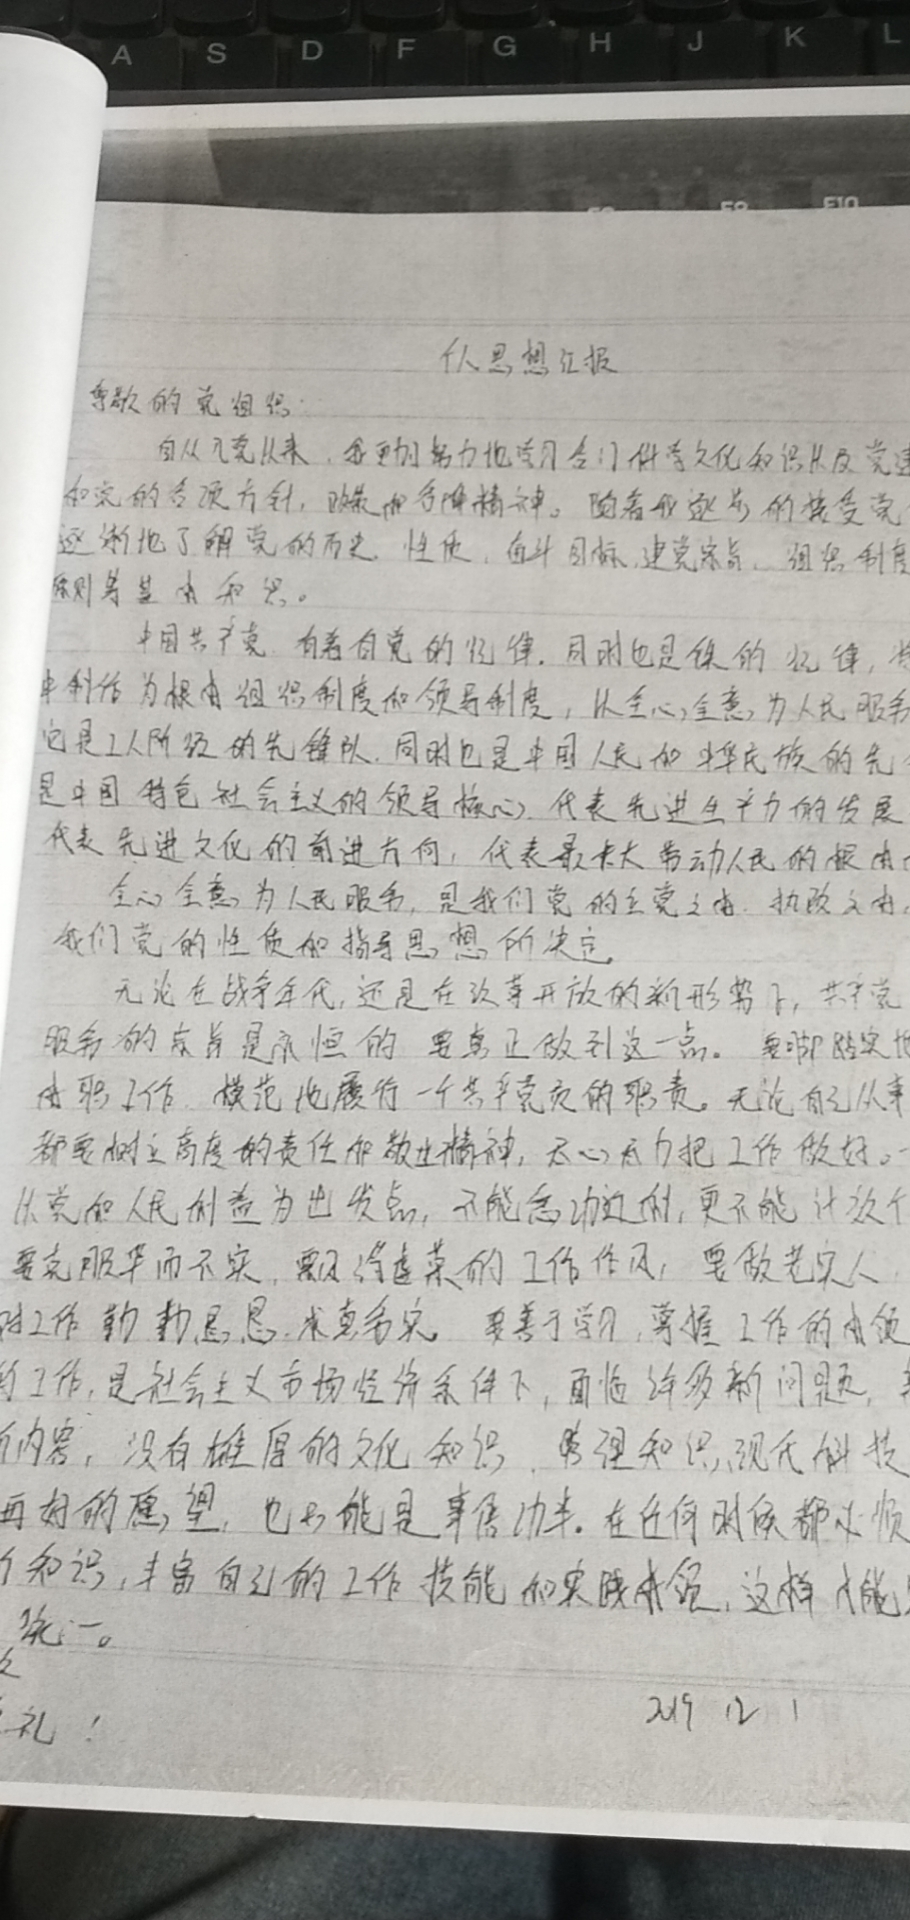 A S D F G H J K L
F8 F9 F10
个人思想汇报
尊敬的党组织:
自从入党以来,我更加努力地学习各门科学文化知识以及党
和党的各项方针,政策和各种精神。随着我逐步的接受党
逐渐地了解党的历史,性质,奋斗目标,建党宗旨,组织制度
原则等基本知识。
中国共产党,有着自觉的纪律,同时也是铁的纪律,
中制作为根本组织制度和领导制度,以全心全意为人民服务
它是工人阶级的先锋队,同时也是中国人民和中华民族的先
是中国特色社会主义的领导核心,代表先进生产力的发展
代表先进文化的前进方向,代表最广大劳动人民的根本
全心全意为人民服务,是我们党的立党之本,执政之本,
我们党的性质和指导思想所决定。
无论在战争年代,还是在改革开放的新形势下,共产党
服务的宗旨是永恒的 要真正做到这一点。要脚踏实地
本职工作,模范地履行一个共产党员的职责。无论自己从事
都要树立高度的责任和敬业精神,尽心尽力把工作做好。一
从党和人民利益为出发点,不能急功近利,更不能计较个
要克服华而不实,飘浮虚荣的工作作风,要做老实人,
对工作勤勤恳恳,求真务实。要善于学习,掌握工作的本领
的工作,是社会主义市场经济条件下,面临许多新问题,
内容,没有雄厚的文化知识,管理知识,现代科技
再好的愿望,也只能是事倍功半。在任何时候都必须
知识,丰富自己的工作技能和实践本领,这样才能
统一。
礼!
2019 12 1